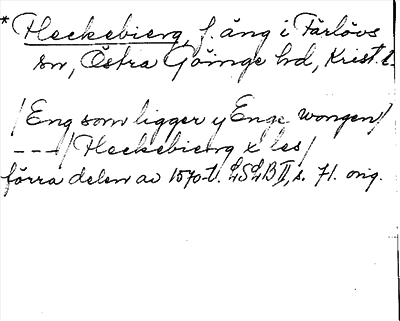 * Fleckebierg, f. äng i Färlövs
sn, Östra Göinge hd, Krist. l.
/Eng som ligger y Enge wongen/
---/Fleckebierg x les/
förra delen av 1570-t. LSLB II, s. 71. orig.